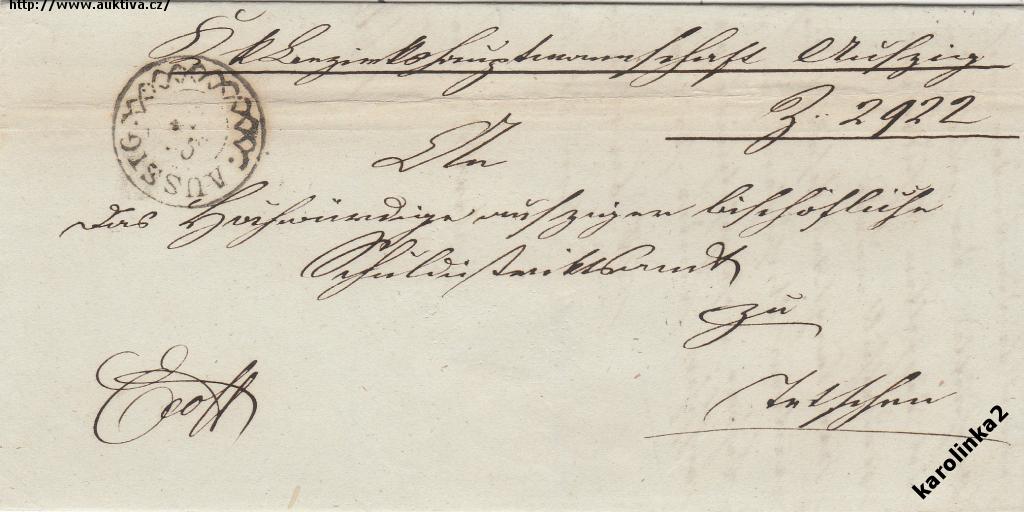 http://www.auktiva.cz/
K k Bezirkshauptmannschaft Außzig
Z: 2922
AUSSIG
An
das Hochwürdige außziger bischöfliche
Schuldistriktsamt
zu
Tetschen
karolinka2